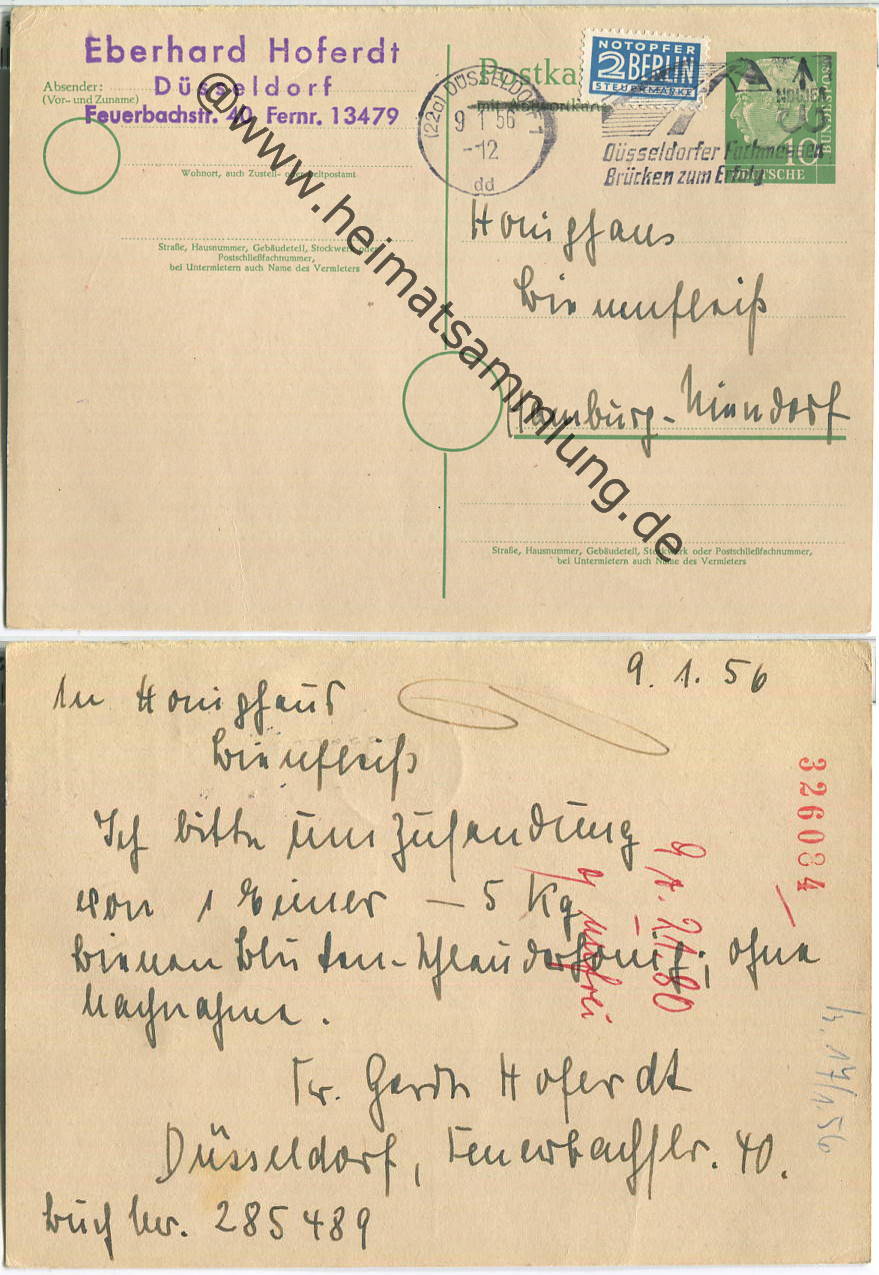 Eberhard Hoferdt
Düsseldorf
Feuerbachstr. 40 Fernr. 13479
Absender:
(Vor- und Zuname)
Wohnort, auch Zustell- oder Leitpostamt
Straße, Hausnummer, Gebäudeteil, Stockwerk oder
Postschließfachnummer,
bei Untermietern auch Name des Vermieters
Postkarte
mit Antwortkarte
NOTOPFER
2 BERLIN
STEUERMARKE
(22a) DÜSSELDORF 1
9 1 56
-12
dd
NOWEA
Düsseldorfer Fachmessen
Brücken zum Erfolg
10
DEUTSCHE
BUNDESPOST
Honighaus
Bienenfleiß
Hamburg-Niendorf
Straße, Hausnummer, Gebäudeteil, Stockwerk oder Postschließfachnummer,
bei Untermietern auch Name des Vermieters
@www.heimatsammlung.de
9. 1. 56
An Honighaus
Bienfleiß
Ich bitte um Zusendung
von 1 Eimer – 5 Kg
Bienen Blüten-Schleuderhonig; ohne
Nachnahme.
Fr. Gerda Hoferdt
Düsseldorf, Feuerbachstr. 40.
Buch Nr. 285489
326084
21.80
17/1.56